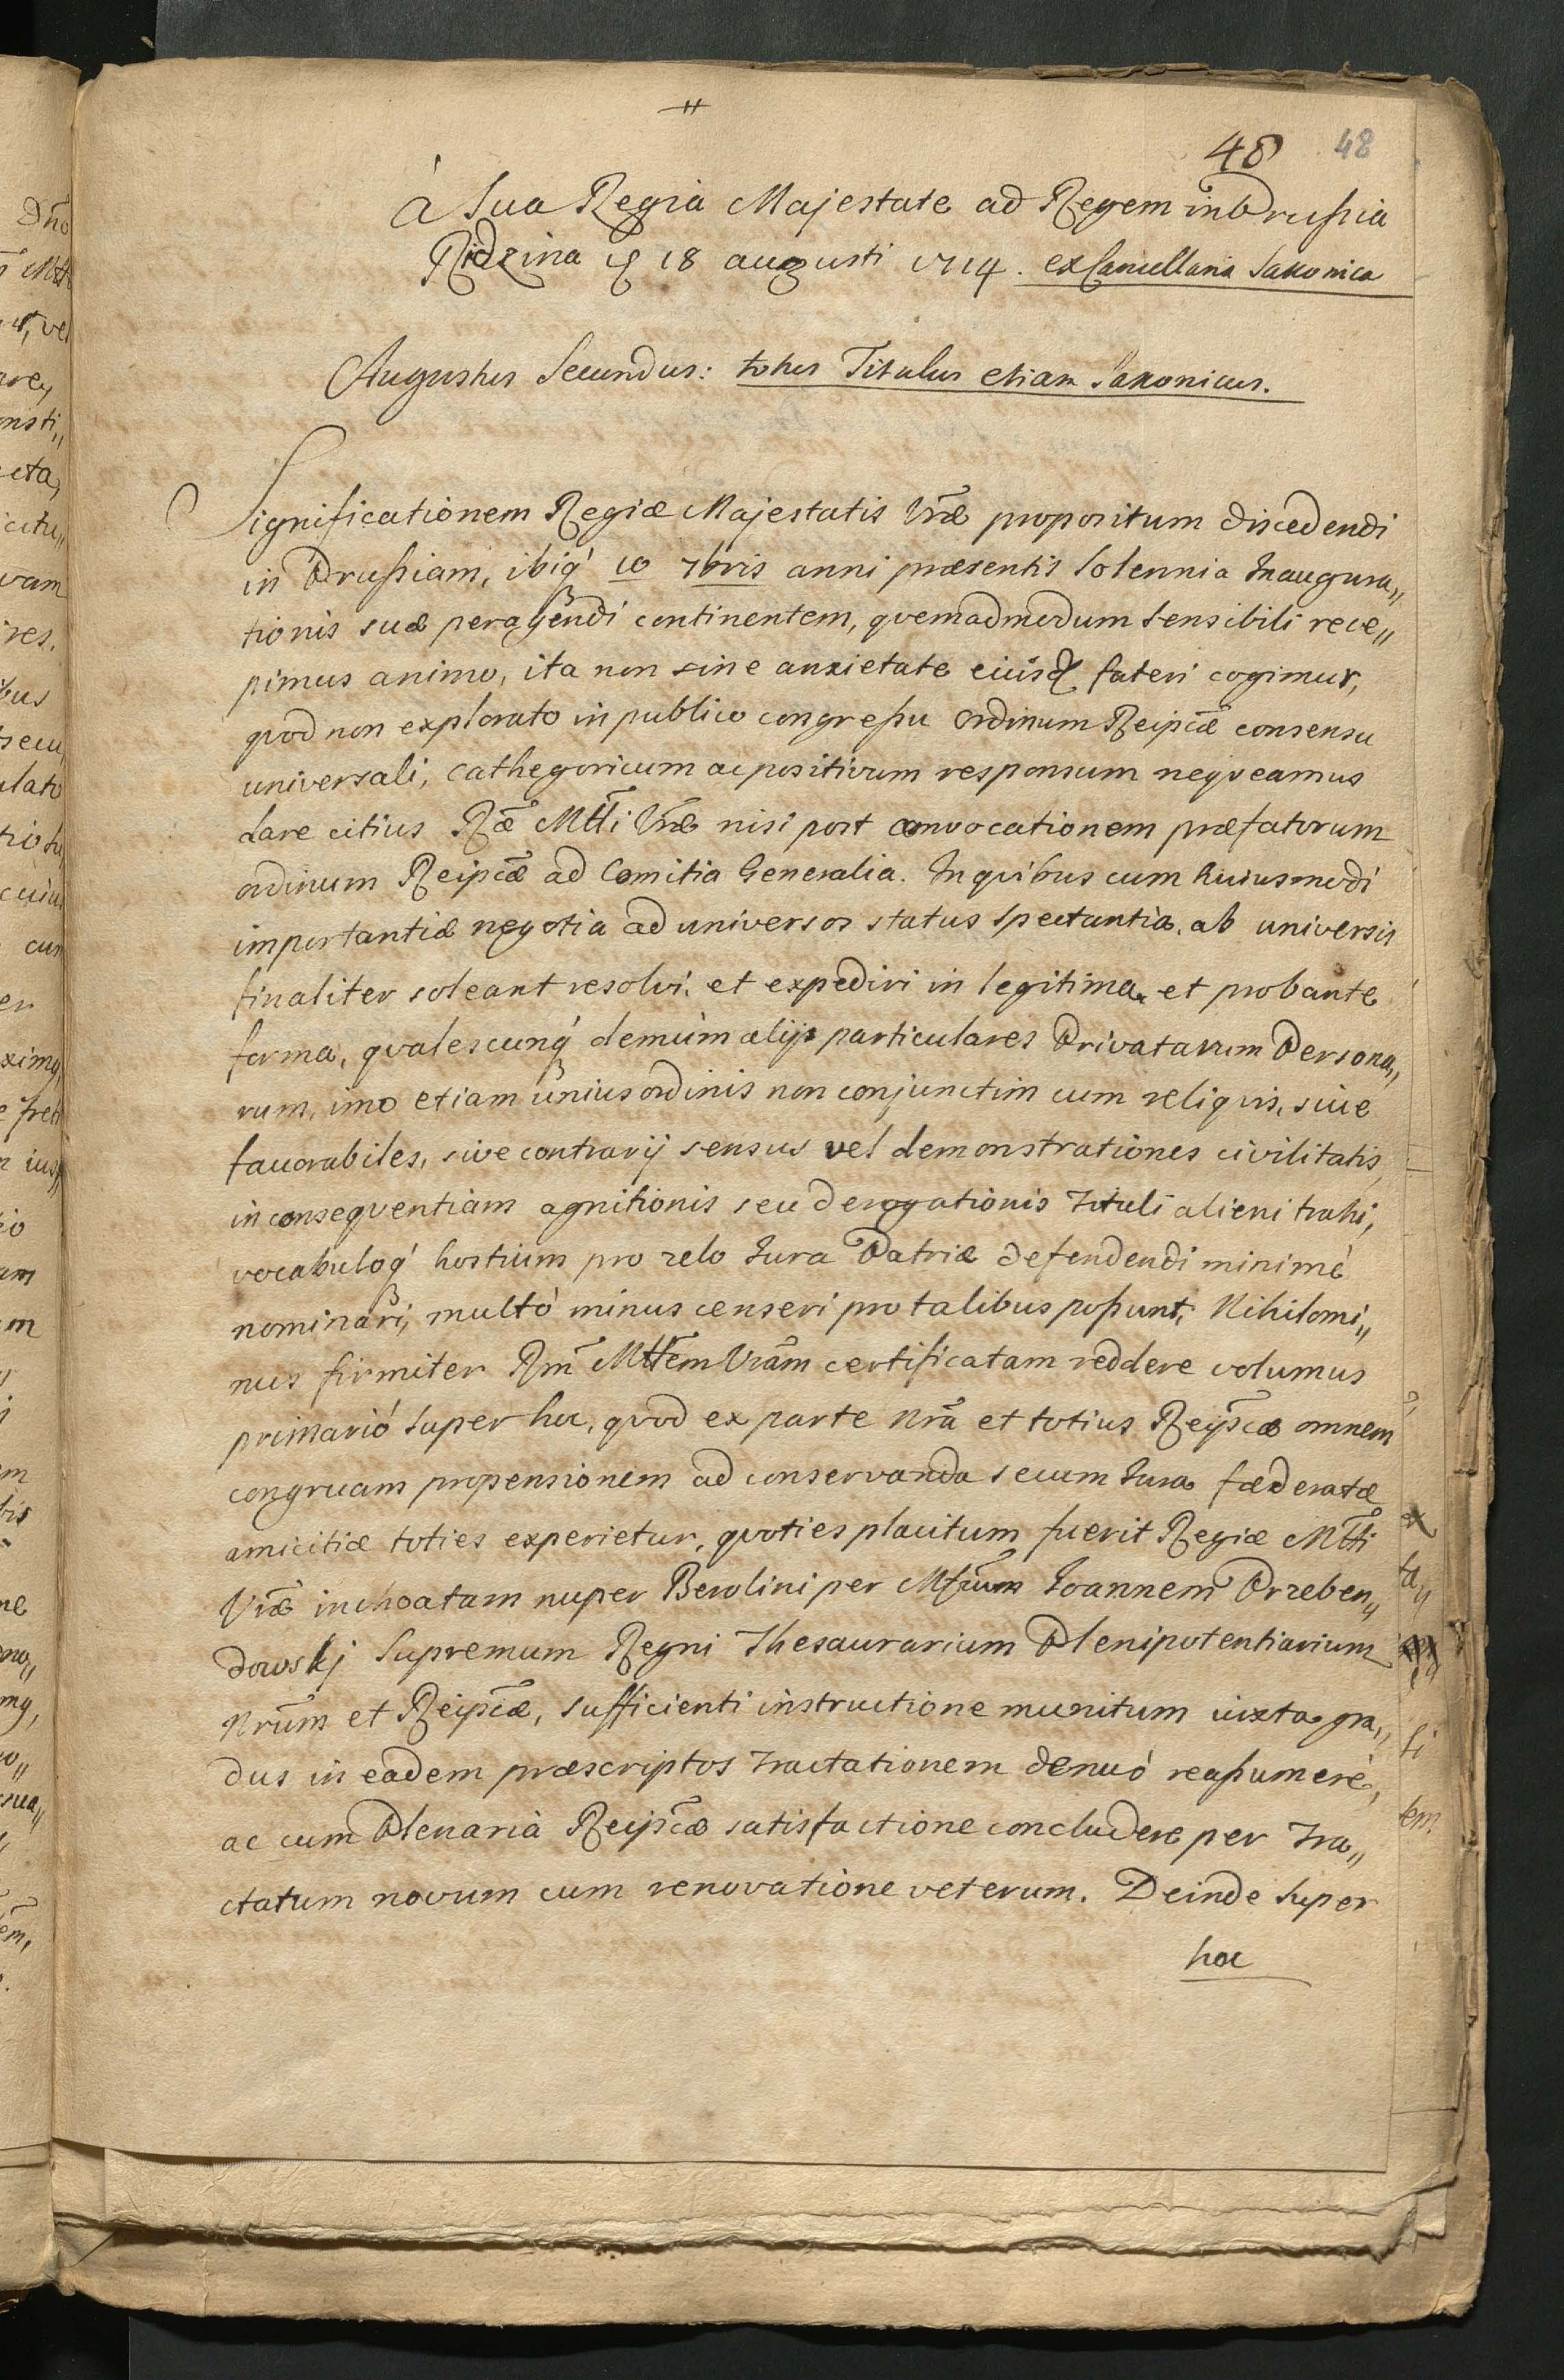 48 48
à Sua Regia Majestate ad Regem in Prussia
Ridzina 18 augusti 1714. ex Cancellaria Saxonica
Augustus Secundus: totus Titulus etiam Saxonicus.
Significationem Regiæ Majestatis Vræ propositum discedendi
in Prussiam, ibiq́ 10 7bris anni præsentis Solennia Inaugura„
tionis suæ peragendi continentem, qvemadmodum sensibili rece„
pimus animo, ita non sine anxietate eiusd fateri cogimur,
qvod non explorato in publico congressu Ordinum Reipcæ consensu
universali, cathegoricum ac positivum responsum neqveamus
dare citius Ræ Mtti Vræ nisi post convocationem præfatorum
ordinum Reipcæ ad Comitia Generalia. In qvibus cum huiusmodi
importantiæ negotia ad universos status spectantia, ab universis
finaliter soleant resolvi, et expediri in legitima et probante
forma, qvalescunq́ demùm alij particulares Privatarum Persona„
rum, imo etiam unius ordinis non conjunctim cum reliqvis, sive
favorabiles, sive contrarij sensus vel demonstrationes civilitatis
in conseqventiam agnitionis seu derogationis Tituli alieni trahi,
vocabuloq́ hostium pro zelo Jura Patriæ defendendi minimè
nominari, multò minus censeri pro talibus possunt, Nihilomi„
nus firmiter Rm̃ Mttem Vram certificatam reddere volumus
primariò super hoc, qvod ex parte nrã et totius Reipscæ omnem
congruam propensionem ad conservanda secum Jura fœderatæ
amicitiæ toties experietur, qvoties placitum fuerit Regiæ Mtti
Vræ inchoatam nuper Berolini per Mfcum Joannem Przeben„
dowskj Supremum Regni Thesaurarium Plenipotentiarium
Nrum et Reipscæ, sufficienti instructione munitum iuxta gra„
dus in eadem præscriptos Tractationem denuò reassumere,
ac cum Plenariâ Reipscæ satisfactione concludere per Tra„
ctatum novum cum renovatione veterum. Deinde super
hoc